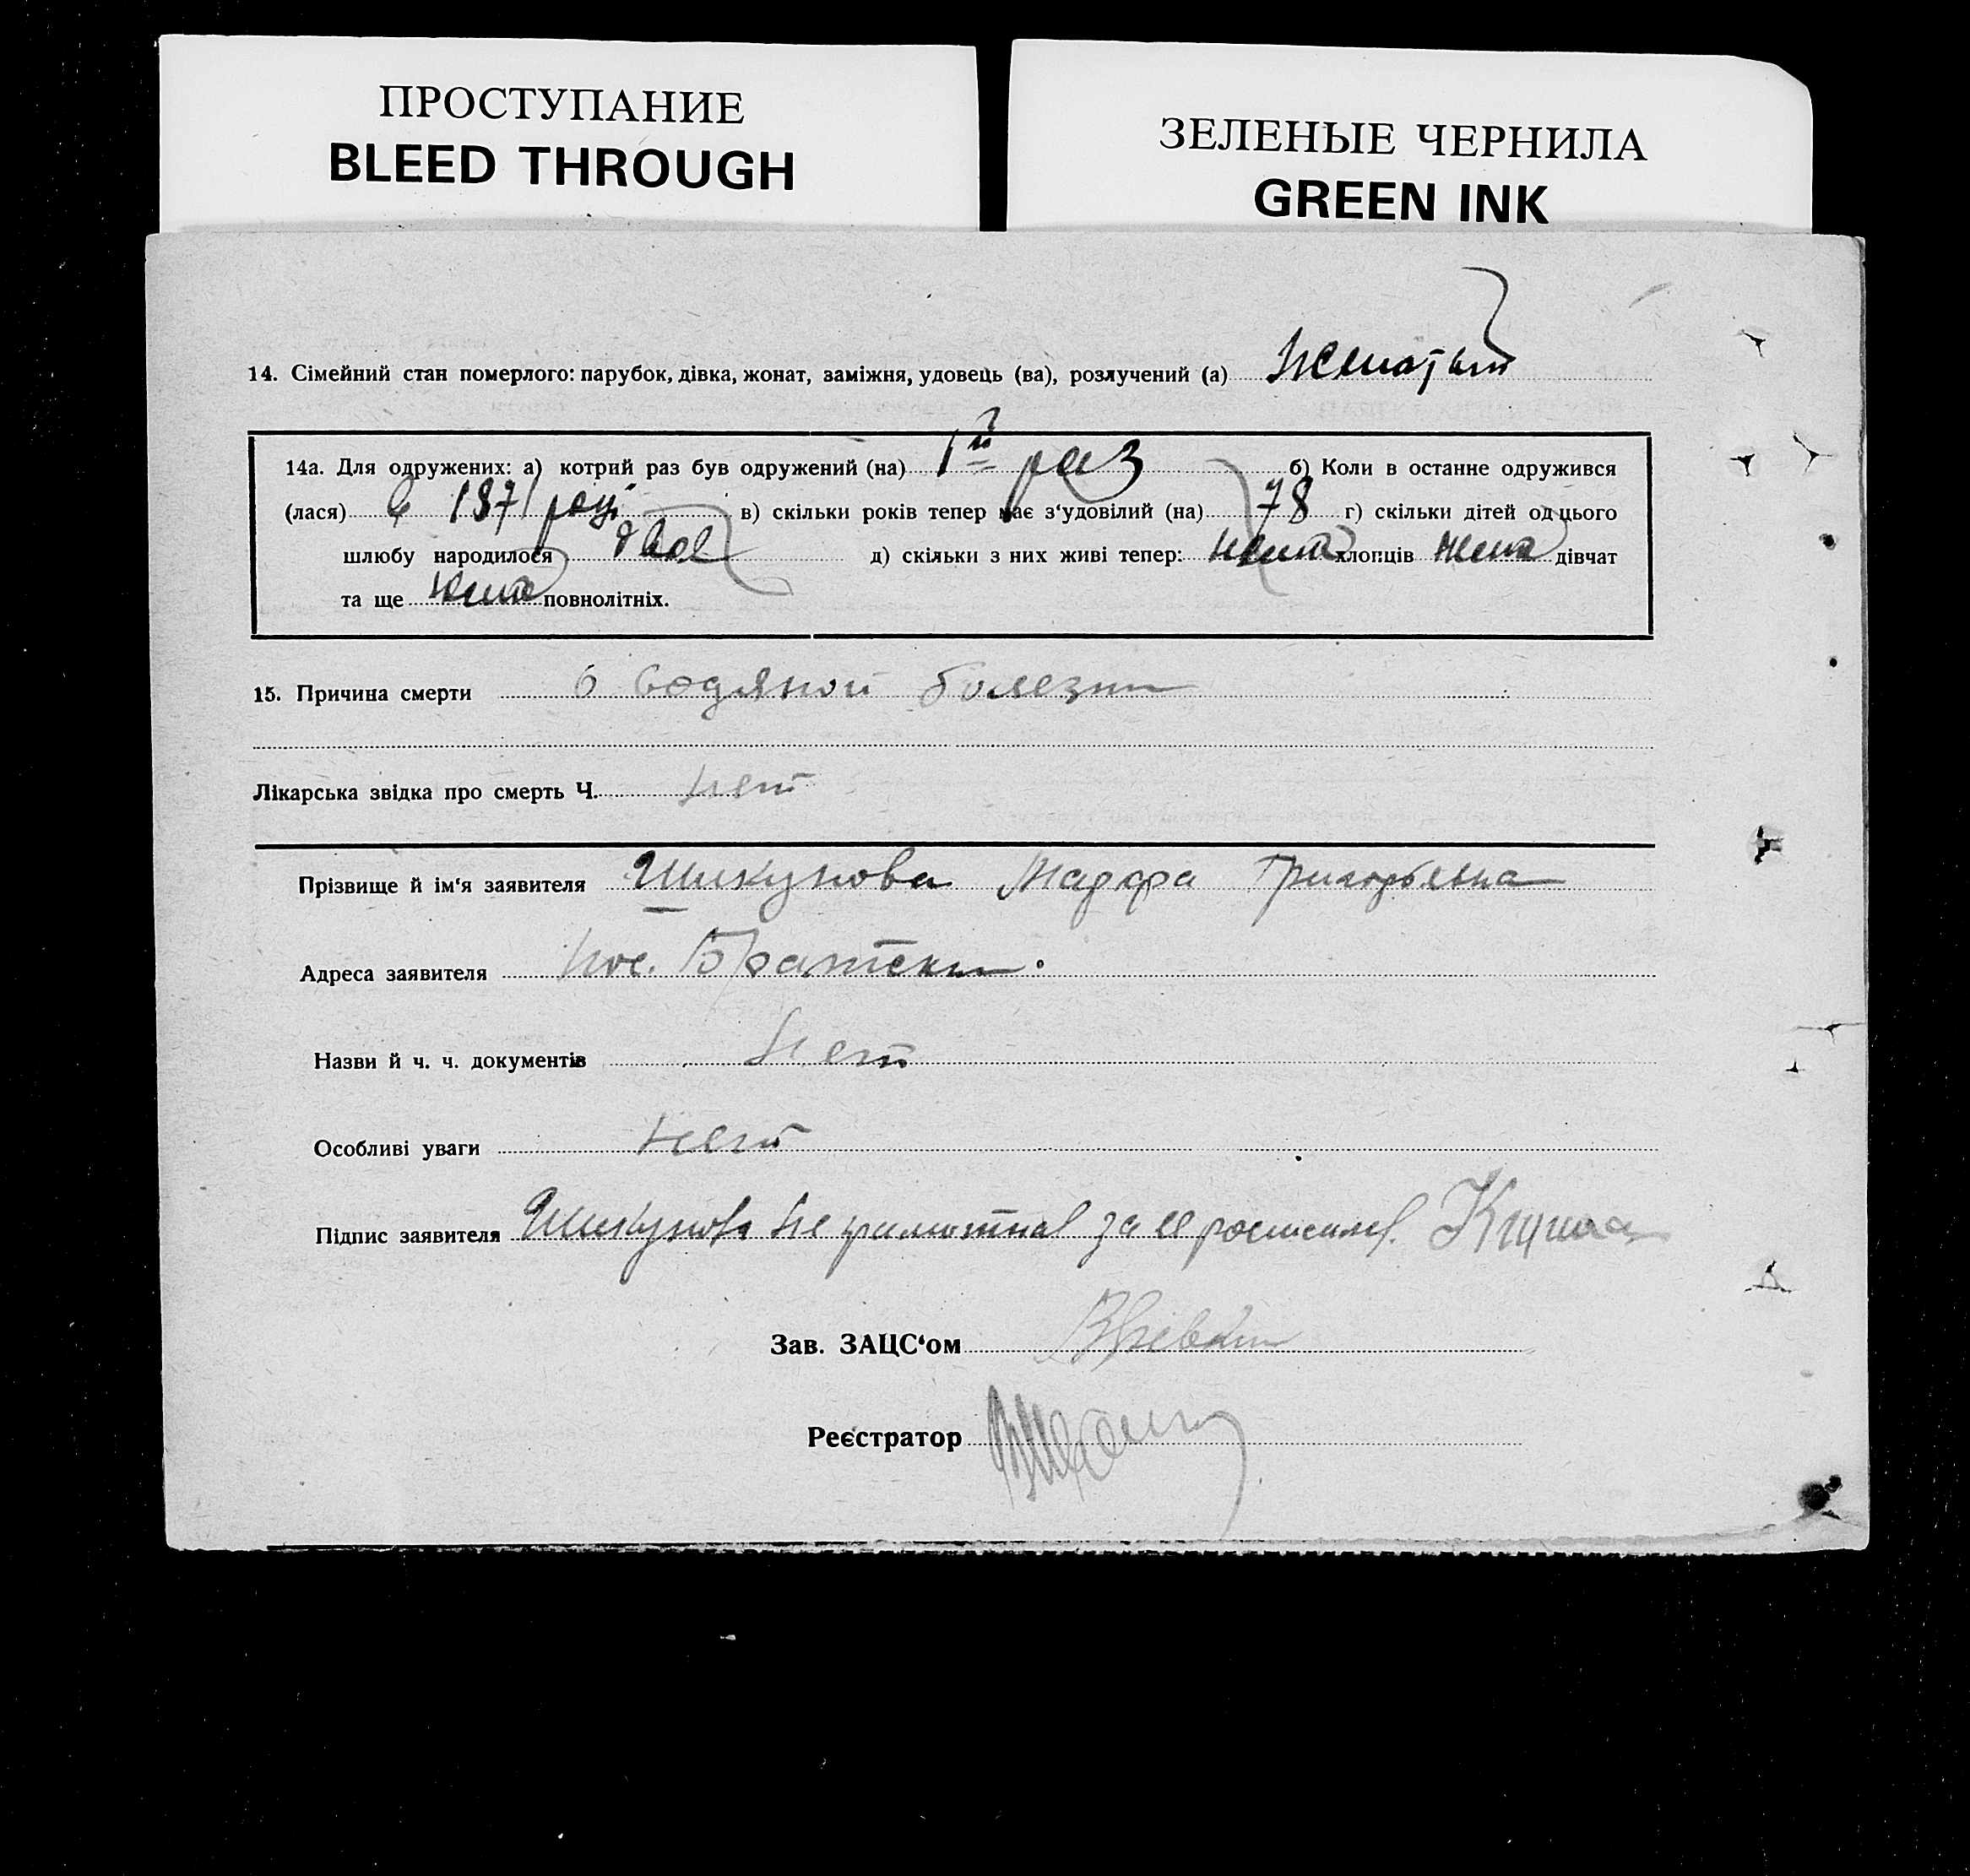 ПРОСТУПАНИЕ
BLEED THROUGH
ЗЕЛЕНЫЕ ЧЕРНИЛА
GREEN INK
14. Сімейний стан померлого: парубок, дівка, жонат, заміжня, удовець (ва), розлучений (а) Женатый
14а. Для одружених: а) котрий раз був одружений (на) 1й раз б) Коли в останне одружився
(лася) в 1871 році в) скільки років тепер має з‘удовілий (на) 78 г) скільки дітей од цього
шлюбу народилося двое д) скільки з них живі тепер: нема хлопців нема дівчат
та ще нема повнолітніх.
15. Причина смерти о водяной болезни
Лікарська звідка про смерть Ч. нет
Прізвище й ім‘я заявителя Шикунова Марфа Григорьевна
Адреса заявителя пос. Братский.
Назви й ч. ч. документів нет
Особливі уваги нет
Підпис заявителя Шикунова не грамотная за ее росписался.
Зав. ЗАЦС‘ом
Реєстратор